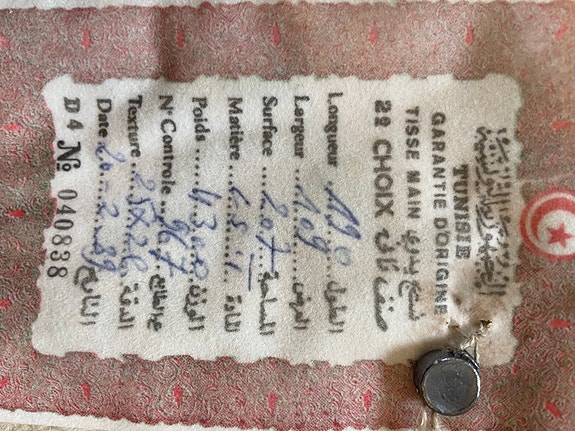 الجمهورية التونسية
TUNISIE
GARANTIE D'ORIGINE
TISSE MAIN نسج يدوي
2è CHOIX صنف ثاني
Longueur 190 الطول
Largeur 109 العرض
Surface 2.07 المساحة
Matière المادة
Poids 4300 الوزن
N° Controle 967
Texture 25x26 الدقة
Date 20-2-89 التاريخ
D4 № 040838